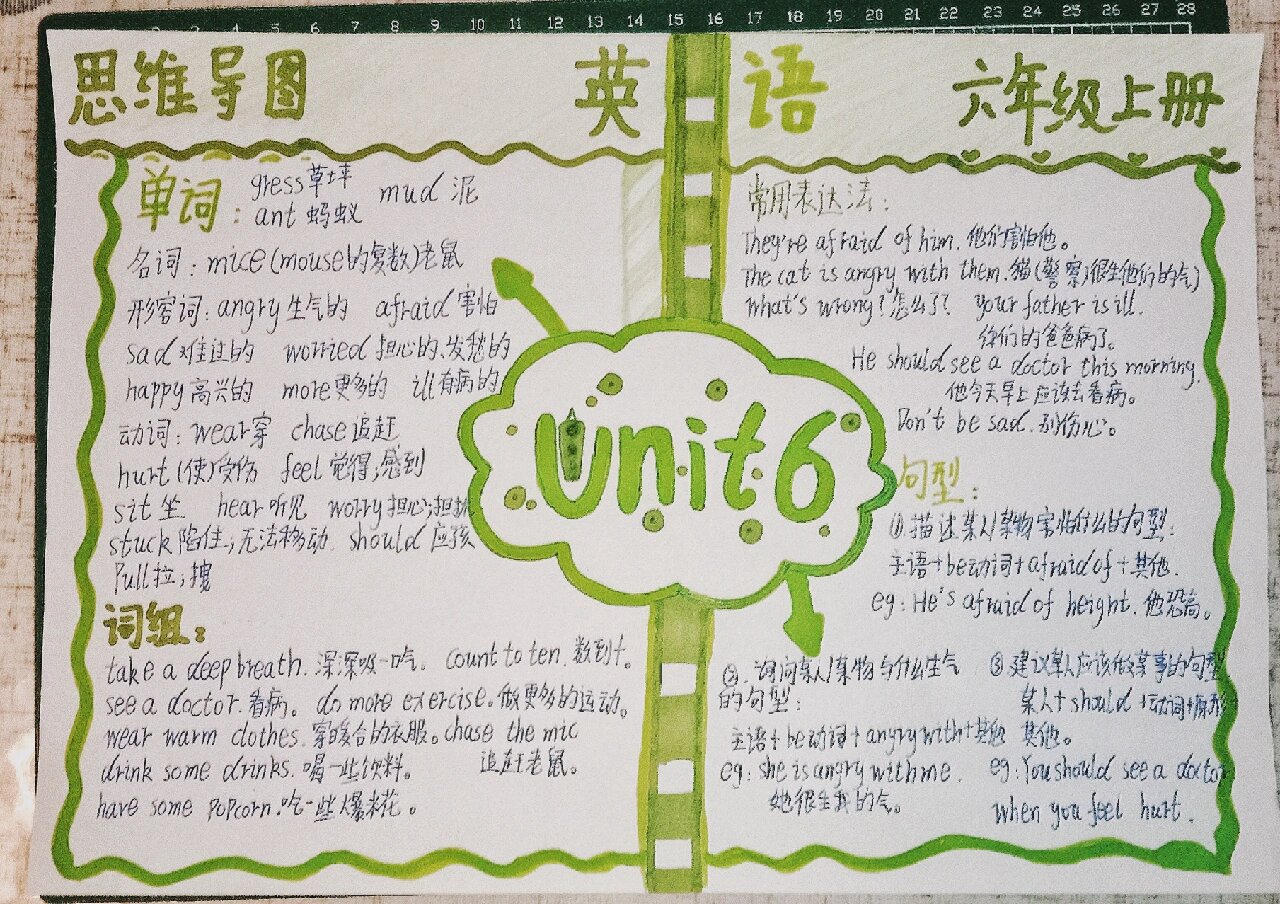 0 1 2 3 4 5 6 7 8 9 10 11 12 13 14 15 16 17 18 19 20 21 22 23 24 25 26 27 28
思维导图 英语 六年级上册
单词: gress草坪 mud 泥
ant 蚂蚁
名词: mice(mouse的复数)老鼠
形容词: angry 生气的 afraid 害怕
sad 难过的 worried 担心的、发愁的
happy 高兴的 more 更多的 ill 有病的
动词: wear 穿 chase 追赶
hurt (使)受伤 feel 觉得;感到
sit 坐 hear 听见 worry 担心;担扰
stuck 陷住;无法移动 should 应该
Pull 拉;拽
词组:
take a deep breath. 深深吸一口气。 count to ten. 数到十。
see a doctor. 看病。 do more exercise. 做更多的运动。
wear warm clothes. 穿暖合的衣服。 chase the mic
drink some drinks. 喝一些饮料。 追赶老鼠。
have some popcorn. 吃一些爆米花。
Unit 6
常用表达法:
They're afraid of him. 他们害怕他。
The cat is angry with them. 猫(警察)很生他们的气)
What's wrong? 怎么了? your father is ill.
你们的爸爸病了。
He should see a doctor this morning.
他今天早上应该去看病。
Don't be sad. 别伤心。
句型:
① 描述某人/某物害怕什么的句型:
主语+be动词+afraid of+其他.
eg: He's afraid of height. 他恐高。
②. 询问某人/某物与什么生气
的句型:
主语+be动词+angry with+其他
eg: she is angry with me.
她很生我的气。
③ 建议某人应该做某事的句型
某人+should+动词+原形
其他。
eg: You should see a docto
when you feel hurt.